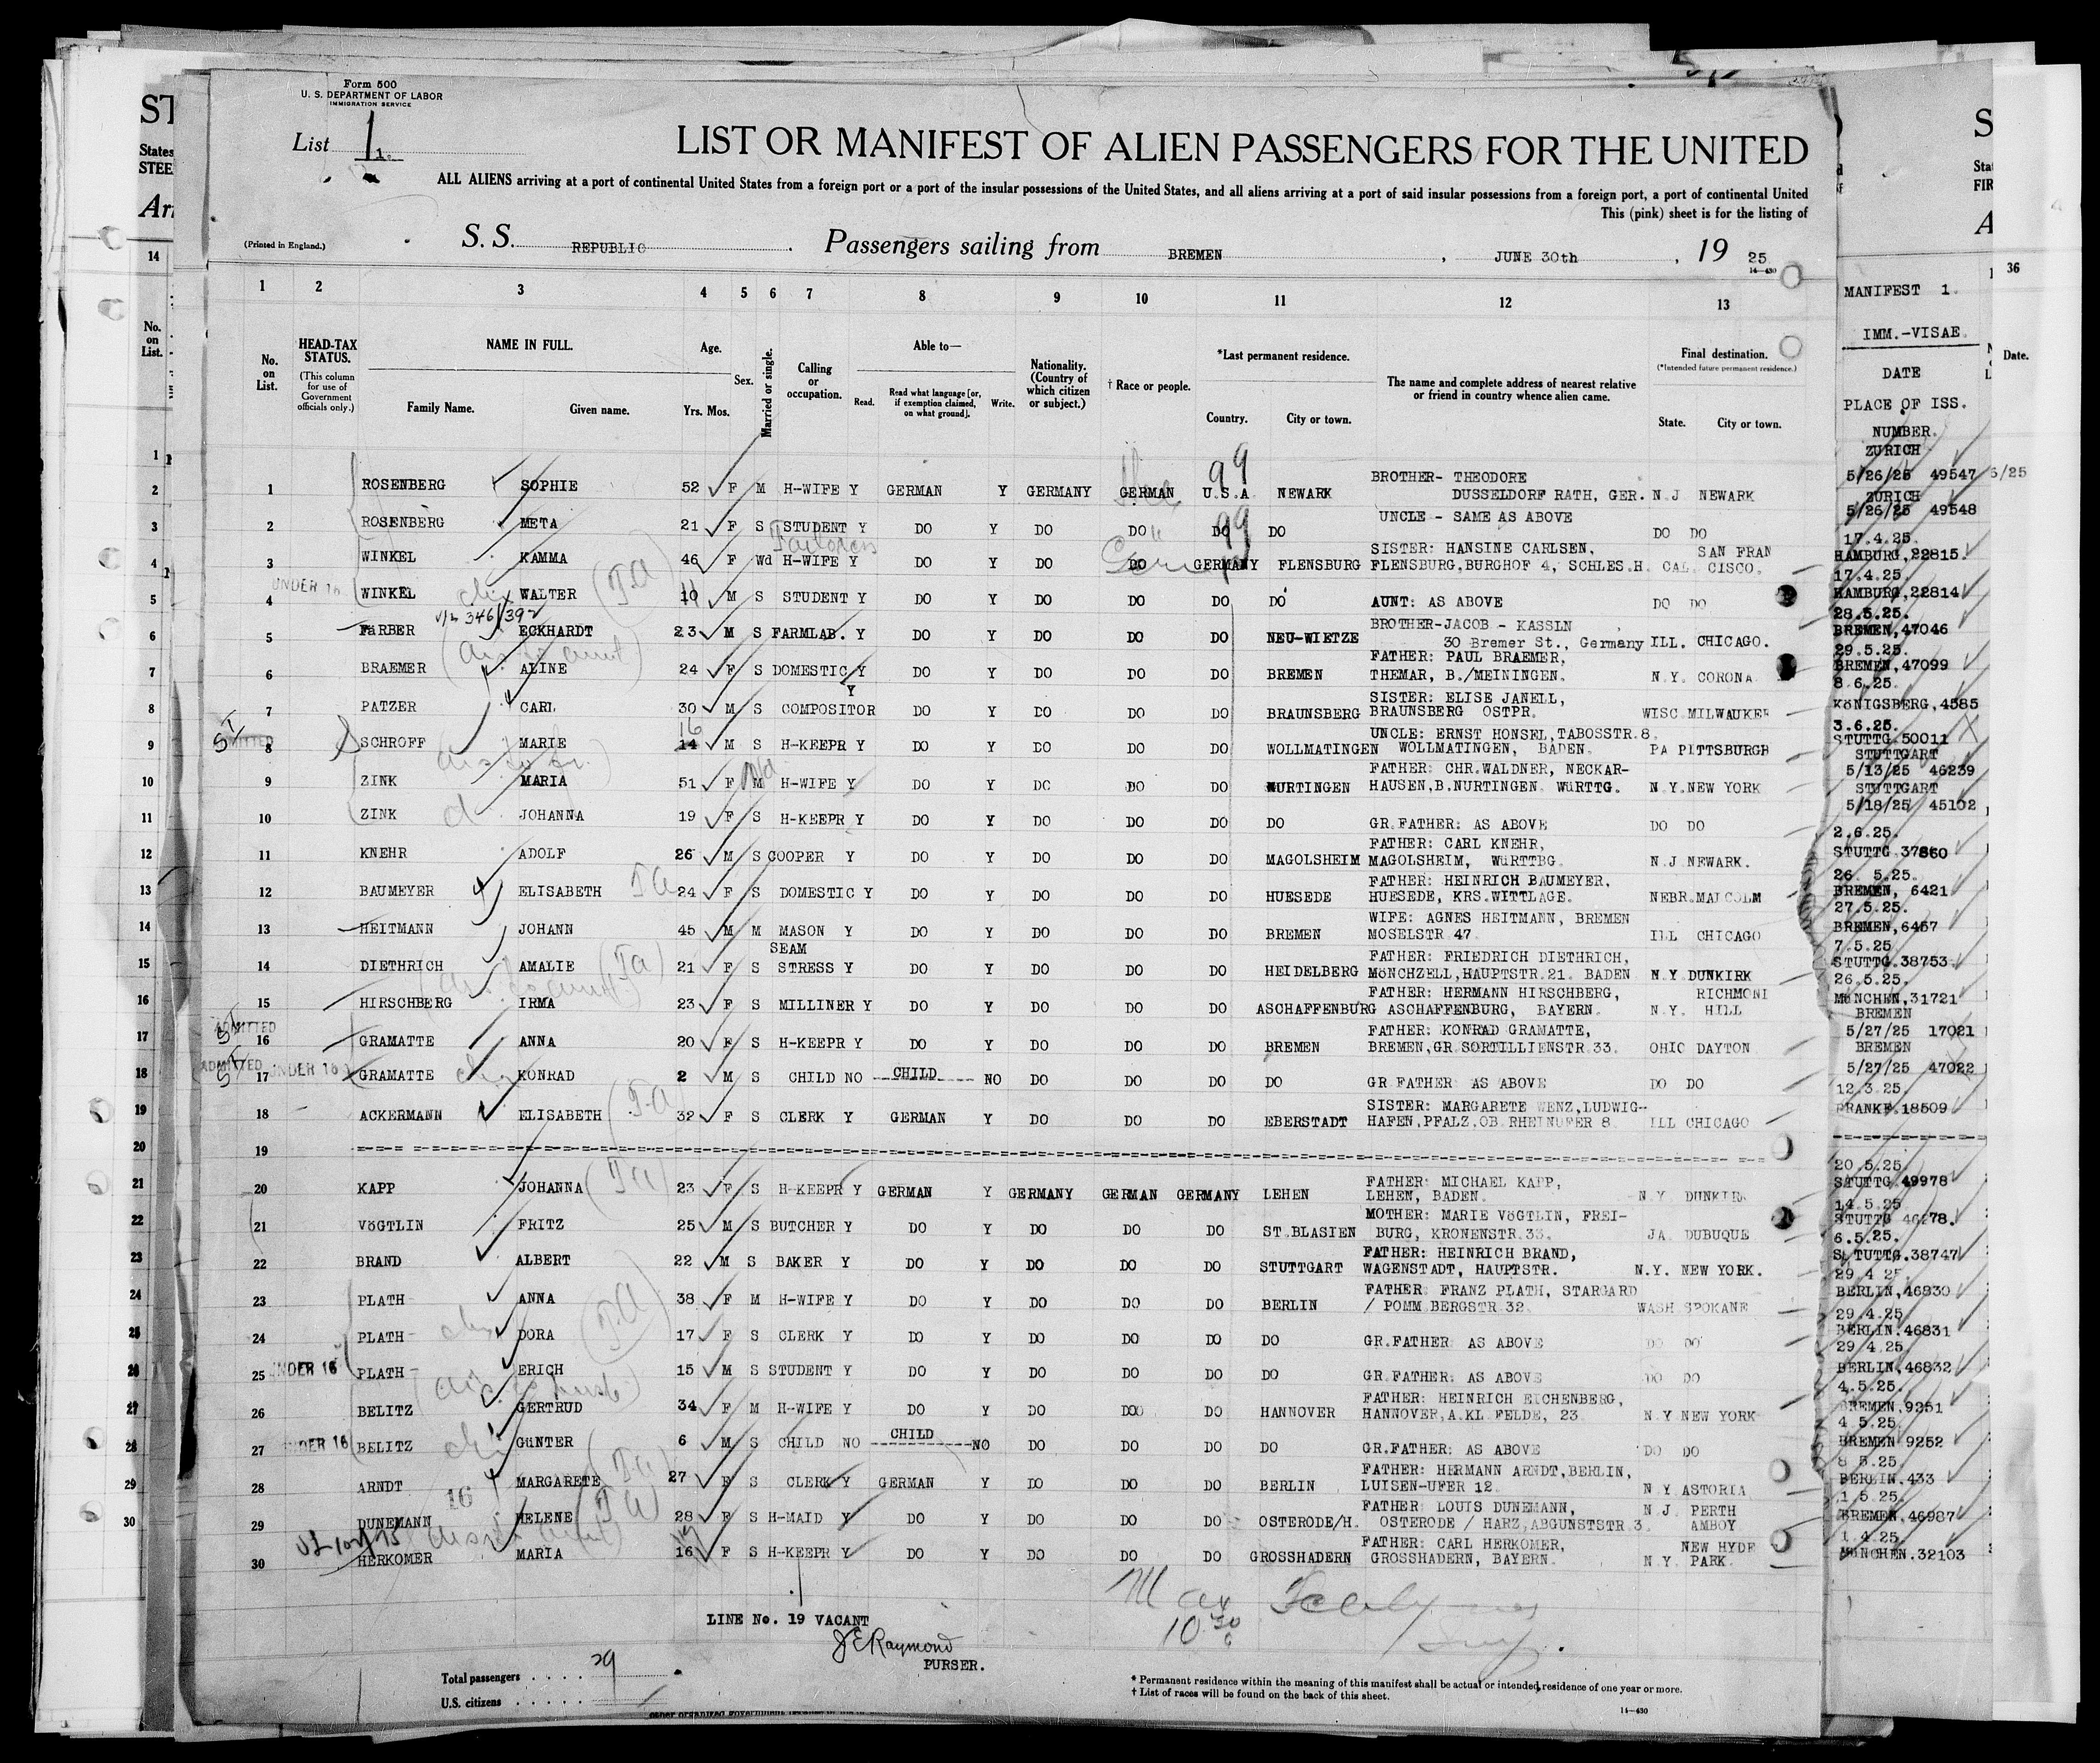 Form 500
U. S. DEPARTMENT OF LABOR
IMMIGRATION SERVICE
List 1
1.
LIST OR MANIFEST OF ALIEN PASSENGERS FOR THE UNITED
ALL ALIENS arriving at a port of continental United States from a foreign port or a port of the insular possessions of the United States, and all aliens arriving at a port of said insular possessions from a foreign port, a port of continental United
This (pink) sheet is for the listing of
(Printed in England.)
S. S. REPUBLIC Passengers sailing from BREMEN, JUNE 30th, 19 25
14—430
1 2 3 4 5 6 7 8 9 10 11 12 13
No. on List.
HEAD-TAX STATUS.
(This column for use of Government officials only.)
NAME IN FULL.
Family Name. Given name.
Age.
Yrs. Mos.
Sex.
Married or single.
Calling or occupation.
Able to—
Read. Read what language [or, if exemption claimed, on what ground]. Write.
Nationality. (Country of which citizen or subject.)
† Race or people.
*Last permanent residence.
Country. City or town.
The name and complete address of nearest relative or friend in country whence alien came.
Final destination.
(*Intended future permanent residence.)
State. City or town.
99
1 ROSENBERG SOPHIE 52 F M H-WIFE Y GERMAN Y GERMANY GERMAN U.S.A. NEWARK BROTHER- THEODORE
DUSSELDORF RATH, GER. N.J NEWARK
99
2 ROSENBERG META 21 F S STUDENT Y DO Y DO DO DO DO UNCLE - SAME AS ABOVE DO DO
3 WINKEL KAMMA 46 F Wd H-WIFE Y DO Y DO DO GERMANY FLENSBURG SISTER: HANSINE CARLSEN,
FLENSBURG.BURGHOF 4, SCHLES.H. CAL. SAN FRAN CISCO.
UNDER 16
4 WINKEL WALTER 10 M S STUDENT Y DO Y DO DO DO DO AUNT: AS ABOVE DO DO
5 FäRBER ECKHARDT 23 M S FARMLAB. Y DO Y DO DO DO NEU-WIETZE BROTHER-JACOB - KASSLN
30 Bremer St., Germany ILL. CHICAGO.
6 BRAEMER ALINE 24 F S DOMESTIC Y DO Y DO DO DO BREMEN FATHER: PAUL BRAEMER,
THEMAR, B./MEININGEN. N.Y. CORONA
7 PATZER CARL 30 M S COMPOSITOR Y DO Y DO DO DO BRAUNSBERG SISTER: ELISE JANELL,
BRAUNSBERG OSTPR. WISC.MILWAUKEE
16
8 SCHROFF MARIE 14 M S H-KEEPR Y DO Y DO DO DO WOLLMATINGEN UNCLE: ERNST HONSEL,TABOSSTR.8.
WOLLMATINGEN, BADEN. PA PITTSBURGH
9 ZINK MARIA 51 F M H-WIFE Y DO Y DO DO DO NURTINGEN FATHER: CHR.WALDNER, NECKAR-
HAUSEN,B.NURTINGEN. WüRTTG. N.Y.NEW YORK
10 ZINK JOHANNA 19 F S H-KEEPR Y DO Y DO DO DO DO GR.FATHER: AS ABOVE DO DO
11 KNEHR ADOLF 26 M S COOPER Y DO Y DO DO DO MAGOLSHEIM FATHER: CARL KNEHR,
MAGOLSHEIM, WüRTTBG. N.J.NEWARK.
12 BAUMEYER ELISABETH 24 F S DOMESTIC Y DO Y DO DO DO HUESEDE FATHER: HEINRICH BAUMEYER,
HUESEDE, KRS.WITTLAGE. NEBR.MALCOLM
13 HEITMANN JOHANN 45 M M MASON Y DO Y DO DO DO BREMEN WIFE: AGNES HEITMANN, BREMEN
MOSELSTR 47. ILL CHICAGO
14 DIETHRICH AMALIE 21 F S SEAM STRESS Y DO Y DO DO DO HEIDELBERG FATHER: FRIEDRICH DIETHRICH,
MöNCHZELL,HAUPTSTR.21. BADEN N.Y.DUNKIRK
15 HIRSCHBERG IRMA 23 F S MILLINER Y DO Y DO DO DO ASCHAFFENBURG FATHER: HERMANN HIRSCHBERG,
ASCHAFFENBURG, BAYERN. N.Y. RICHMOND HILL
ADMITTED
16 GRAMATTE ANNA 20 F S H-KEEPR Y DO Y DO DO DO BREMEN FATHER: KONRAD GRAMATTE,
BREMEN,GR.SORTILLIENSTR 33. OHIO DAYTON
ADMITTED UNDER 16
17 GRAMATTE KONRAD 2 M S CHILD NO CHILD NO DO DO DO DO GR FATHER AS ABOVE DO DO
18 ACKERMANN ELISABETH 32 F S CLERK Y GERMAN Y DO DO DO EBERSTADT SISTER: MARGARETE WENZ,LUDWIG-
HAFEN,PFALZ.OB.RHEINUFER 8. ILL CHICAGO
19
20 KAPP JOHANNA 23 F S H-KEEPR Y GERMAN Y GERMANY GERMAN GERMANY LEHEN FATHER: MICHAEL KAPP,
LEHEN, BADEN. N.Y. DUNKIRK
21 VöGTLIN FRITZ 25 M S BUTCHER Y DO Y DO DO DO ST.BLASIEN MOTHER: MARIE VöGTLIN, FREI-
BURG, KRONENSTR.33. JA. DUBUQUE
22 BRAND ALBERT 22 M S BAKER Y DO Y DO DO DO STUTTGART FATHER: HEINRICH BRAND,
WAGENSTADT, HAUPTSTR. N.Y. NEW YORK.
23 PLATH ANNA 38 F M H-WIFE Y DO Y DO DO DO BERLIN FATHER: FRANZ PLATH, STARGARD
/ POMM BERGSTR 32. WASH SPOKANE
24 PLATH DORA 17 F S CLERK Y DO Y DO DO DO DO GR.FATHER AS ABOVE DO DO
UNDER 16
25 PLATH ERICH 15 M S STUDENT Y DO Y DO DO DO DO GR.FATHER: AS ABOVE DO DO
26 BELITZ GERTRUD 34 F M H-WIFE Y DO Y DO DO DO HANNOVER FATHER: HEINRICH EICHENBERG,
HANNOVER,A.KL.FELDE, 23. N.Y NEW YORK
UNDER 16
27 BELITZ GüNTER 6 M S CHILD NO CHILD NO DO DO DO DO GR.FATHER: AS ABOVE DO DO
28 ARNDT MARGARETE 27 F S CLERK Y GERMAN Y DO DO DO BERLIN FATHER: HERMANN ARNDT,BERLIN,
LUISEN-UFER 12. N.Y.ASTORIA
16
29 DUNEMANN HELENE 28 F S H-MAID Y DO Y DO DO DO OSTERODE/H. FATHER LOUIS DUNEMANN,
OSTERODE / HARZ,ABGUNSTSTR.3. N.J. PERTH AMBOY
30 HERKOMER MARIA 16 F S H-KEEPR Y DO Y DO DO DO GROSSHADERN FATHER: CARL HERKOMER,
GROSSHADERN, BAYERN. N.Y. NEW HYDE PARK.
LINE No. 19 VACANT
J E Raymond
PURSER.
Total passengers . . . . . 29
U.S. citizens . . . . .
* Permanent residence within the meaning of this manifest shall be actual or intended residence of one year or more.
† List of races will be found on the back of this sheet.
14—430
MANIFEST 1.
IMM.-VISAE.
DATE
PLACE OF ISS.
NUMBER.
ZURICH
5/26/25 49547
ZURICH
5/26/25 49548
17.4.25.
HAMBURG,22815.
17.4.25.
HAMBURG,22814
28.5.25.
BREMEN,47046
29.5.25.
BREMEN,47099
8.6.25.
KöNIGSBERG,4585
3.6.25.
STUTTG.50011
STUTTGART
5/13/25 46239
STUTTGART
5/18/25 45102
2.6.25.
STUTTG.37860
26. 5.25.
BREMEN, 6421
27.5.25.
BREMEN,6457
7.5.25
STUTTG.38753
26.5.25.
MüNCHEN,31721
BREMEN
5/27/25 17021
BREMEN
5/27/25 47022
12.3.25
FRANKF.18509
20.5.25.
STUTTG.49978
14.5.25
STUTTG 46278.
6.5.25.
STUTTG.38747
29 4 25
BERLIN,46830
29.4.25
BERLIN.46831
29 4.25
BERLIN,46832
4.5.25.
BREMEN,9251
4 5.25
BREMEN 9252
8 5.25.
BERLIN,433
1 5.25.
BREMEN,46987
1.4.25
MüNCHEN.32103
36
Date.